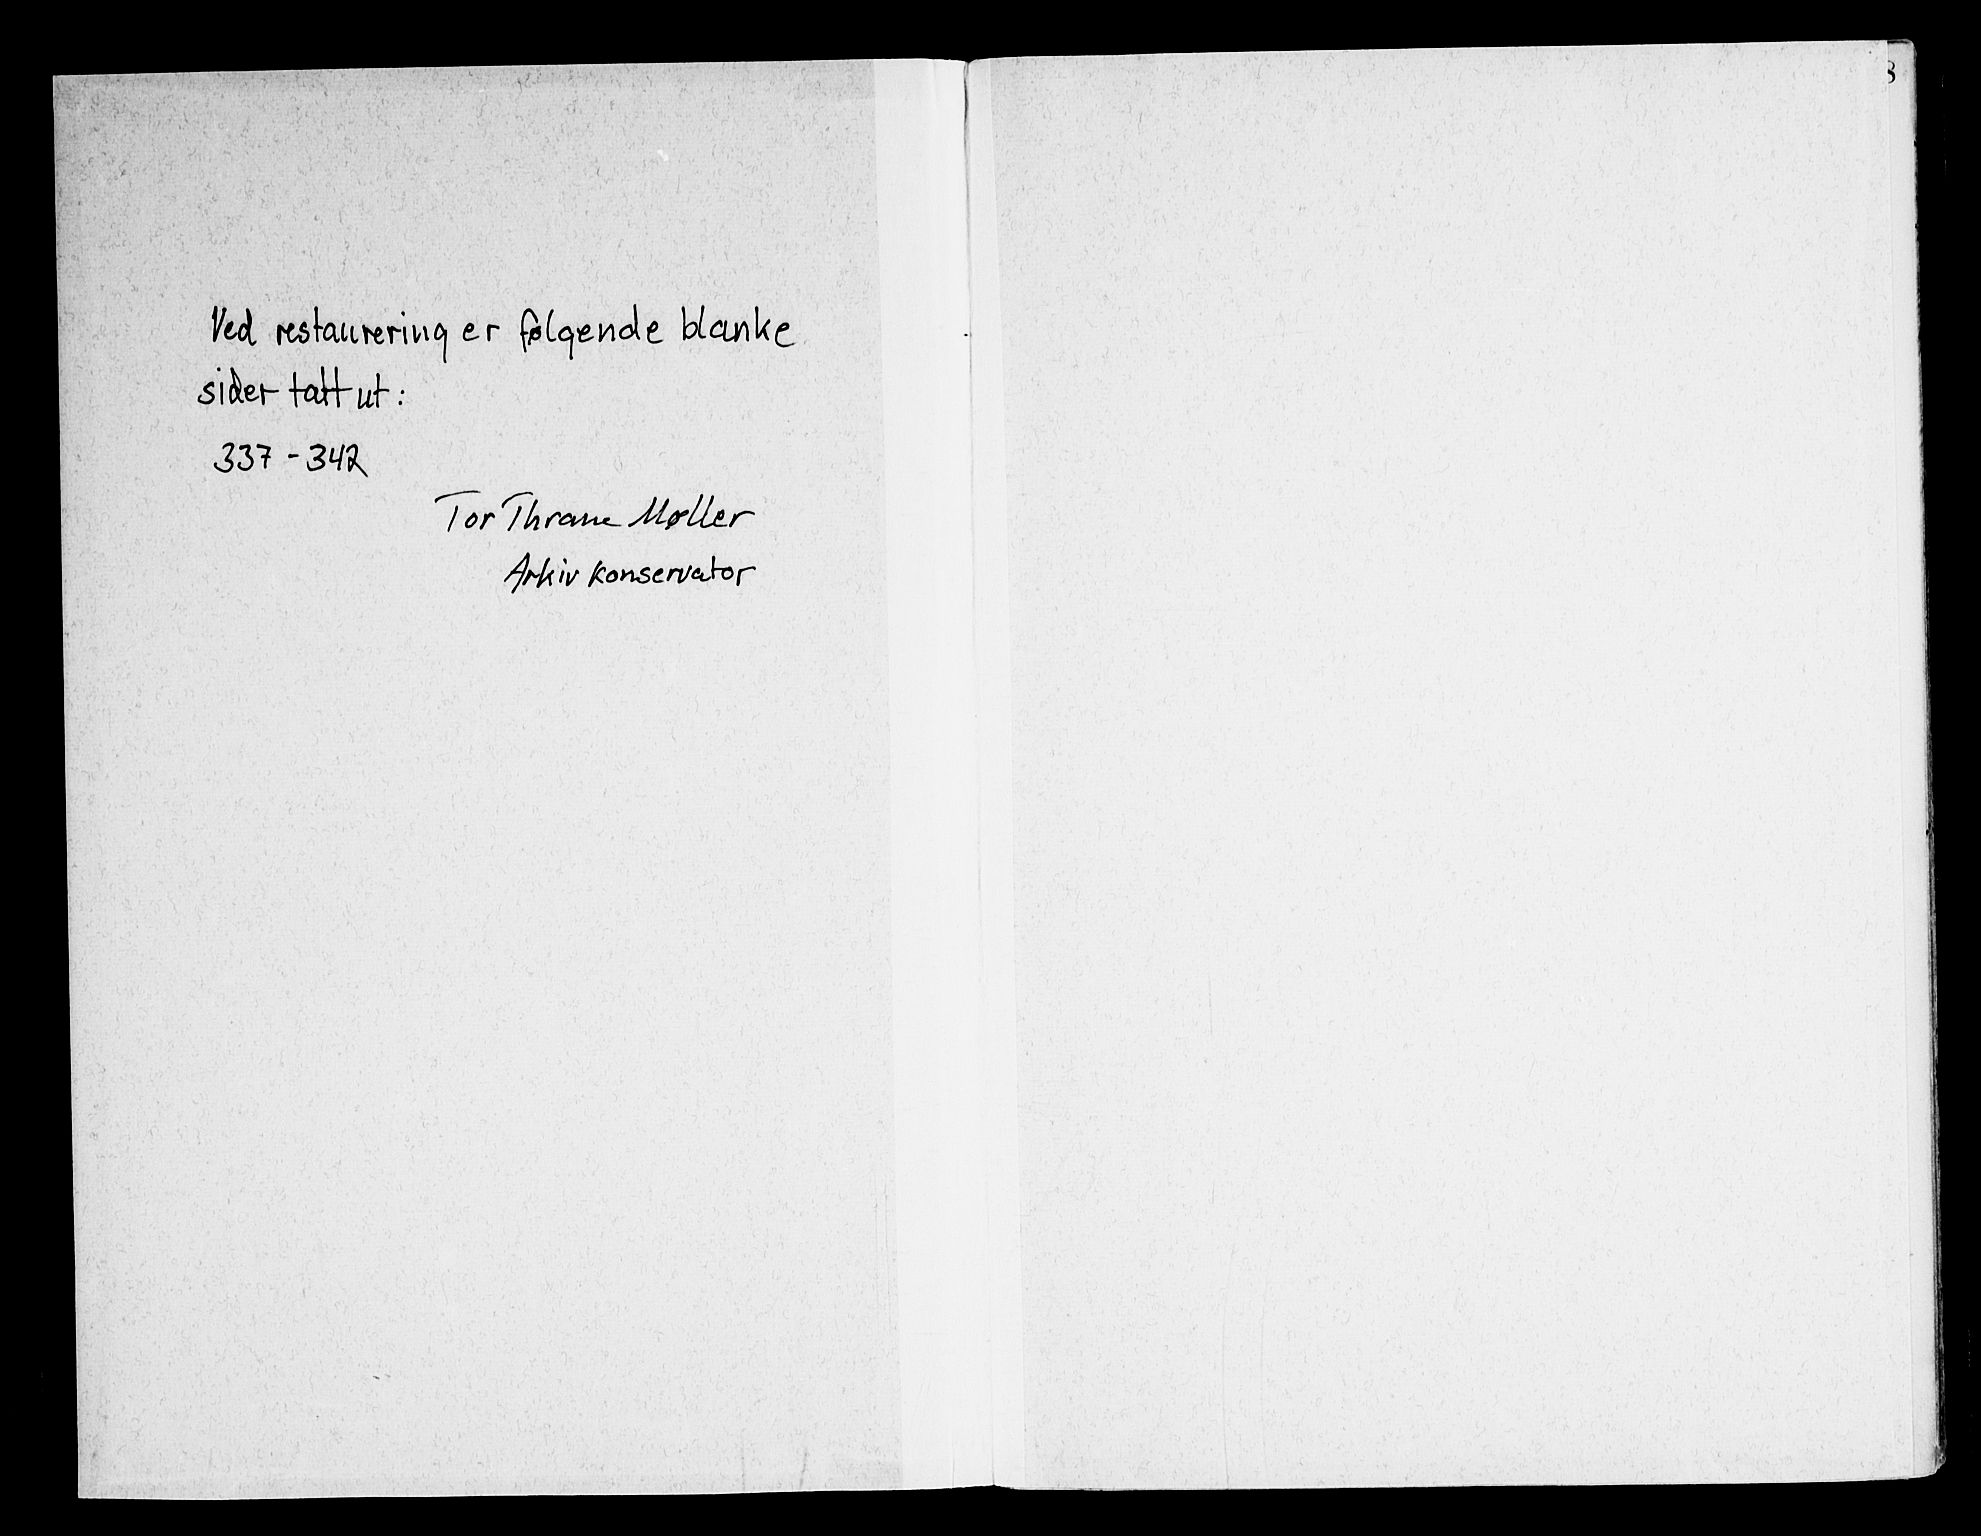 Ved restaurering er følgende blanke
sider tatt ut:
337 - 342
Tor Thrane Møller
Arkiv konservator
8